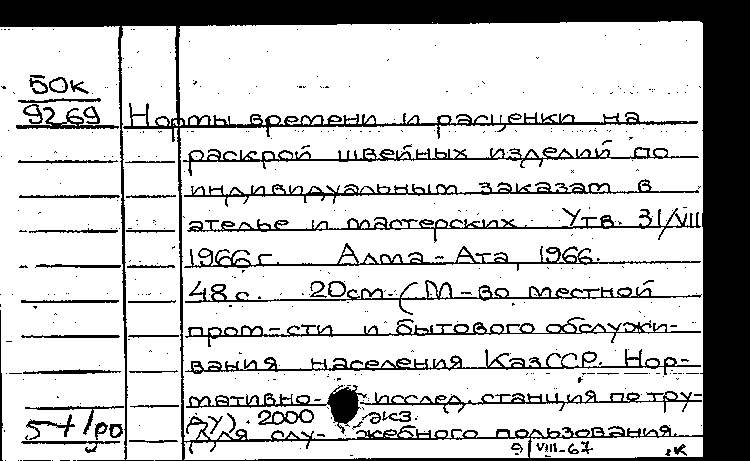 БОК
9269
Нормы времени и расценки на
раскрой швейных изделий по
индивидуальным заказам в
ателье и мастерских. Утв. 31/VIII
1966 г. Алма-Ата, 1966.
48 с. 20 см. (М-во местной
пром-сти и бытового обслужи-
вания населения КазССР. Нор-
мативно-исслед. станция по тру-
ду). 2000 экз.
Для слу-жебного пользования.
9/VIII-67 .К